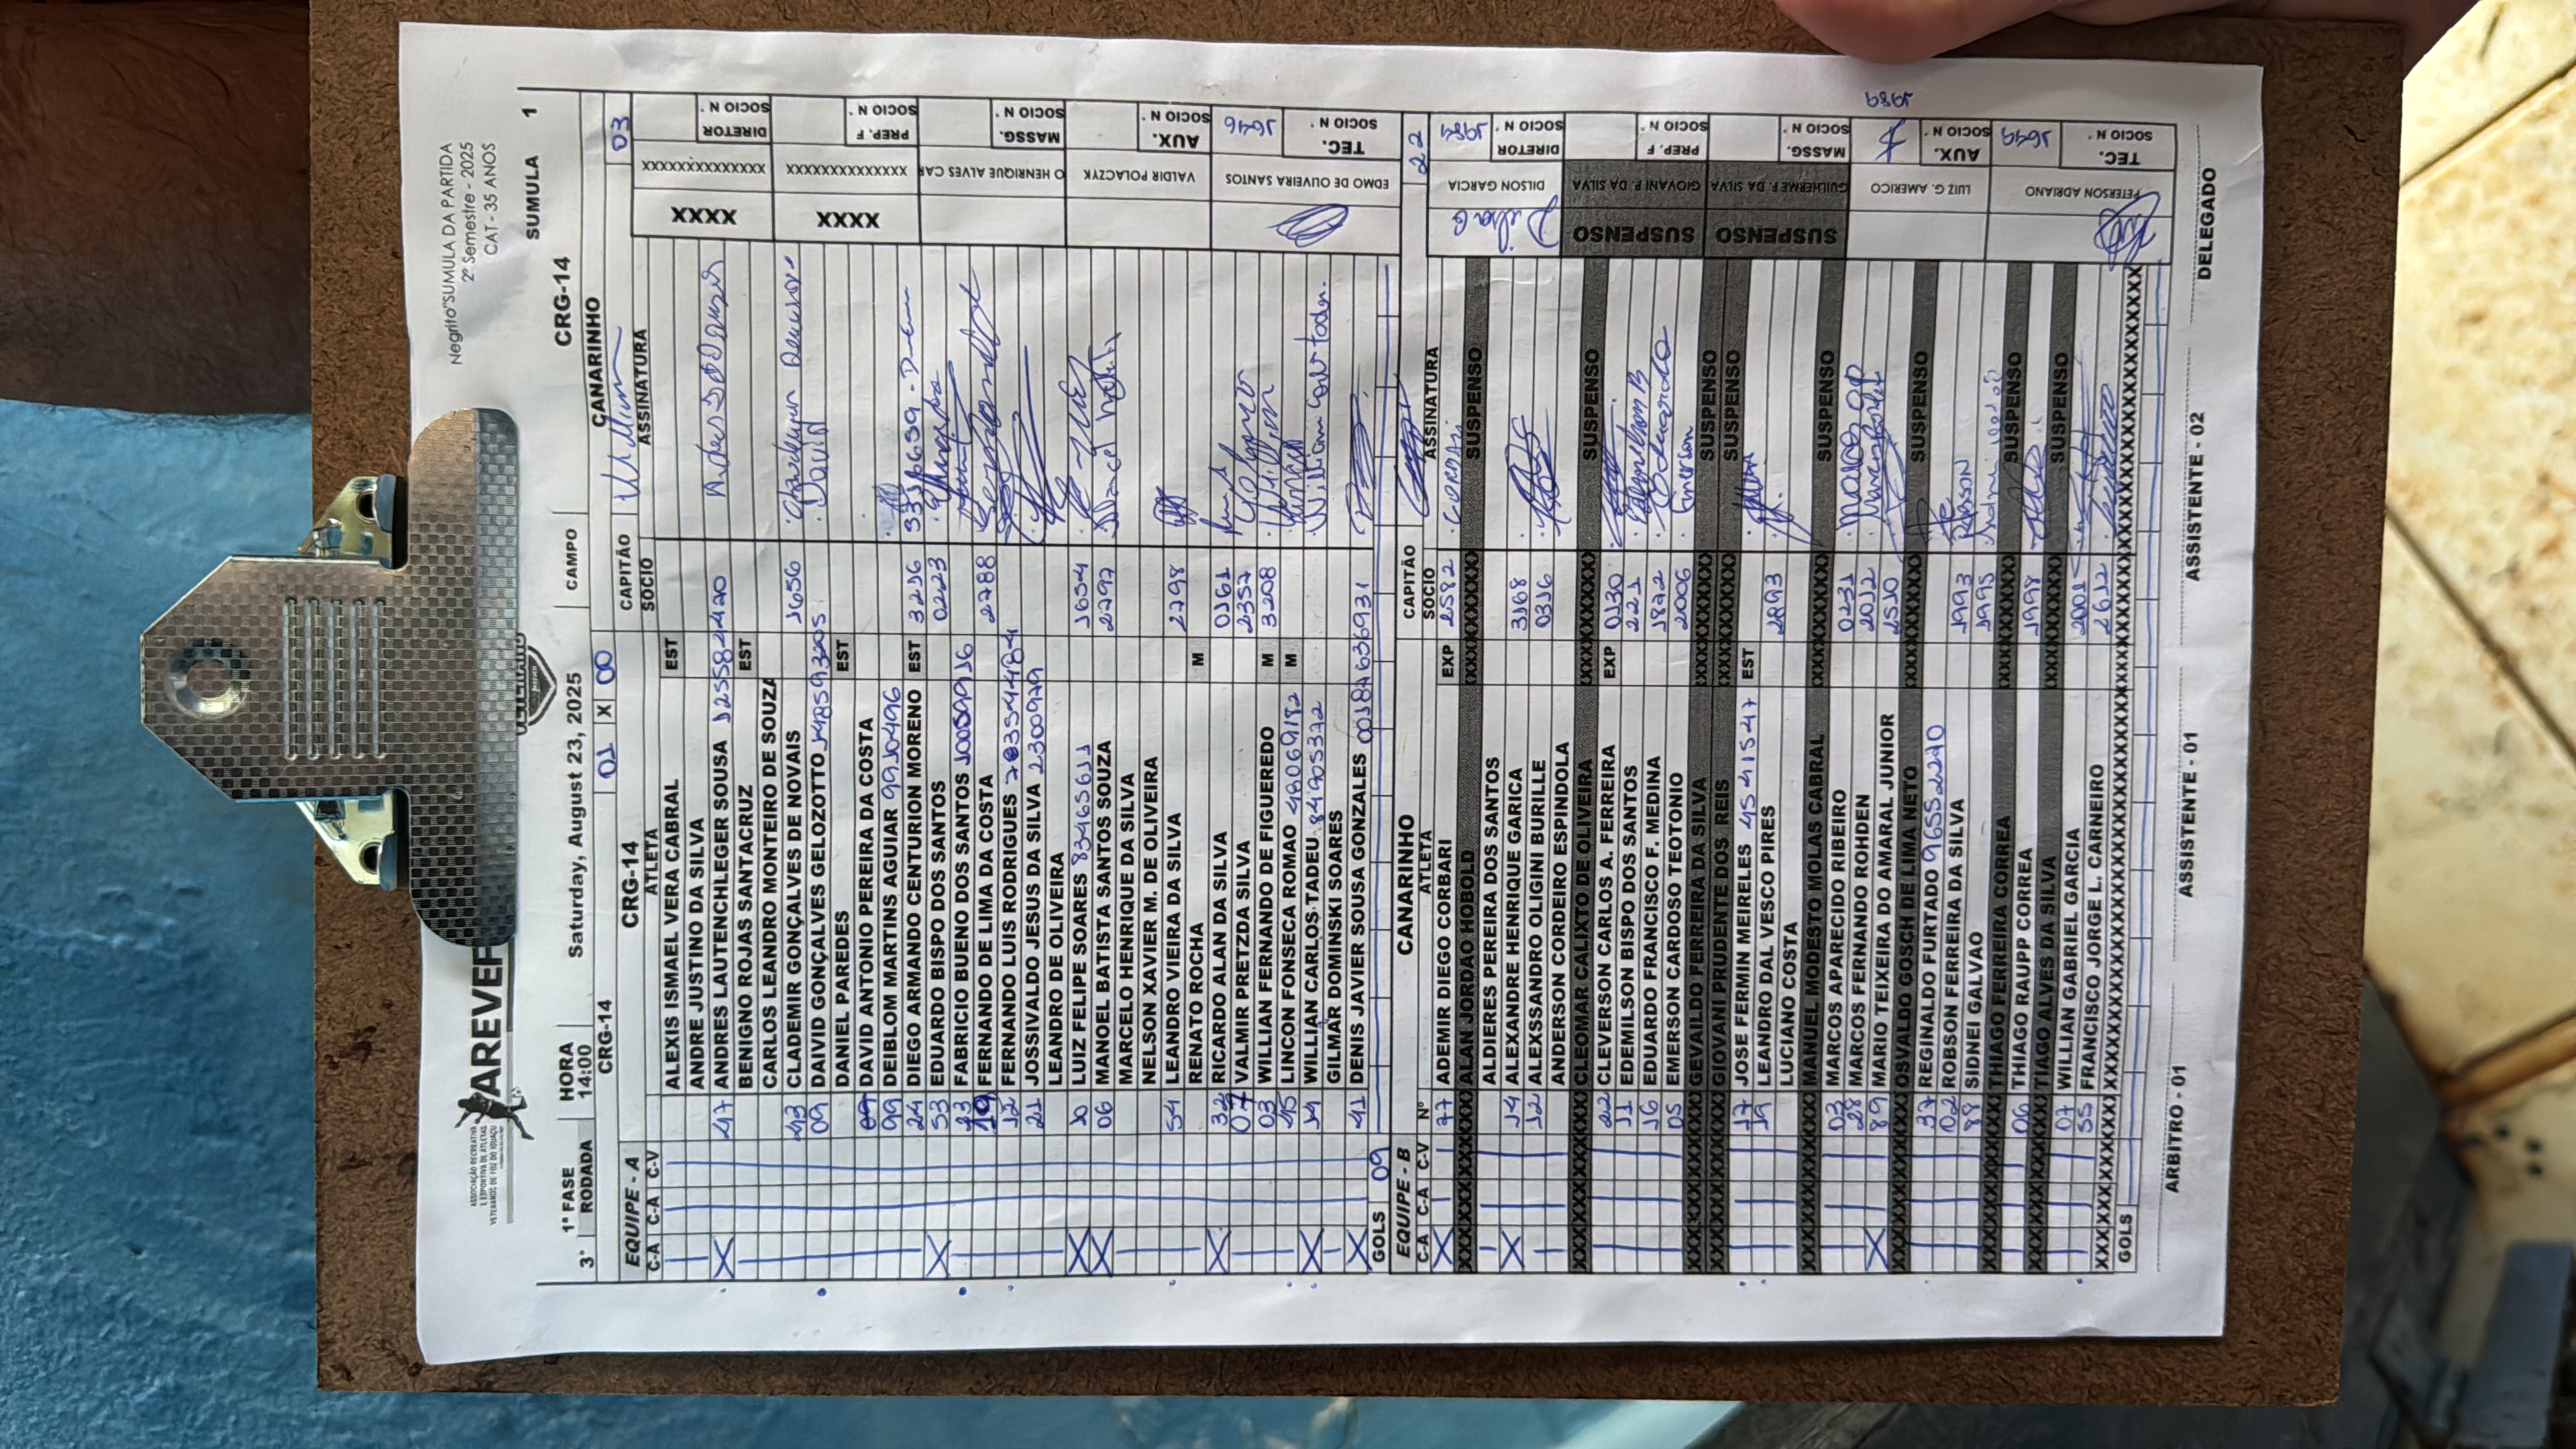 Negrito"SUMULA DA PARTIDA
2º Semestre - 2025
CAT - 35 ANOS
AREVEF
ASSOCIAÇÃO RECREATIVA
E ESPORTIVA DE ATLETAS
VETERANOS DE FOZ DO IGUAÇU
SUMULA 1
3ª 1ª FASE RODADA HORA 14:00 Saturday, August 23, 2025 CAMPO CRG-14
CRG-14 01 X 00 CANARINHO
EQUIPE - A CRG-14 CAPITÃO 03
C-A C-A C-V Nº ATLETA SOCIO ASSINATURA
ALEXIS ISMAEL VERA CABRAL EST
ANDRE JUSTINO DA SILVA
X 47 ANDRES LAUTENCHLEGER SOUSA
BENIGNO ROJAS SANTACRUZ EST
CARLOS LEANDRO MONTEIRO DE SOUZA
43 CLADEMIR GONÇALVES DE NOVAIS 1656
09 DAIVID GONÇALVES GELOZOTTO David
DANIEL PAREDES EST
DAVID ANTONIO PEREIRA DA COSTA
99 DEIBLOM MARTINS AGUIAR 99104996
24 DIEGO ARMANDO CENTURION MORENO EST 3216
X 53 EDUARDO BISPO DOS SANTOS 0223
23 FABRICIO BUENO DOS SANTOS
19 FERNANDO DE LIMA DA COSTA 2788
12 FERNANDO LUIS RODRIGUES
21 JOSSIVALDO JESUS DA SILVA 2300979
LEANDRO DE OLIVEIRA
X LUIZ FELIPE SOARES 83465611 1654
X 06 MANOEL BATISTA SANTOS SOUZA 2797
MARCELO HENRIQUE DA SILVA
NELSON XAVIER M. DE OLIVEIRA
54 LEANDRO VIEIRA DA SILVA 2798
RENATO ROCHA M
X RICARDO ALAN DA SILVA 0161
07 VALMIR PRETZDA SILVA 2357
03 WILLIAN FERNANDO DE FIGUEREDO M 3208
LINCON FONSECA ROMAO 48069182 M
X 14 WILLIAN CARLOS TADEU 84905372
GILMAR DOMINSKI SOARES
X 41 DENIS JAVIER SOUSA GONZALES
GOLS 09
XXXX XXXXXXXXXXXXXXX DIRETOR SOCIO N°
XXXX XXXXXXXXXXXXXXX PREP. F SOCIO N°
O HENRIQUE ALVES CAR MASSG. SOCIO N°
VALDIR POLACZYK AUX. SOCIO N° 1646
EDMO DE OLIVEIRA SANTOS TEC. SOCIO N°
EQUIPE - B CANARINHO CAPITÃO 22
C-A C-A C-V Nº ATLETA SOCIO ASSINATURA
X 77 ADEMIR DIEGO CORBARI EXP 2582 CORBARI
ALAN JORDAO HOBOLD SUSPENSO
ALDIERES PEREIRA DOS SANTOS
X 14 ALEXANDRE HENRIQUE GARICA 3168
12 ALEXSSANDRO OLIGINI BURILLE 0316
ANDERSON CORDEIRO ESPINDOLA
CLEOMAR CALIXTO DE OLIVEIRA SUSPENSO
22 CLEVERSON CARLOS A. FERREIRA EXP 0130
11 EDEMILSON BISPO DOS SANTOS 2221
16 EDUARDO FRANCISCO F. MEDINA 1872
05 EMERSON CARDOSO TEOTONIO 2006 Emerson
GEVAILDO FERREIRA DA SILVA SUSPENSO
GIOVANI PRUDENTE DOS REIS SUSPENSO
17 JOSE FERMIN MEIRELES 4541547 EST
19 LEANDRO DAL VESCO PIRES 2893
LUCIANO COSTA
MANUEL MODESTO MOLAS CABRAL SUSPENSO
03 MARCOS APARECIDO RIBEIRO 0231
28 MARCOS FERNANDO ROHDEN 2012
X 89 MARIO TEIXEIRA DO AMARAL JUNIOR 2510
OSVALDO GOSCH DE LIMA NETO SUSPENSO
37 REGINALDO FURTADO
02 ROBSON FERREIRA DA SILVA 1993 ROBSON
88 SIDNEI GALVAO 1995
THIAGO FERREIRA CORREA SUSPENSO
06 THIAGO RAUPP CORREA 1998
TIAGO ALVES DA SILVA SUSPENSO
07 WILLIAN GABRIEL GARCIA 2001
55 FRANCISCO JORGE L. CARNEIRO 2612
GOLS
DILSON GARCIA DIRETOR SOCIO N° 1984
SUSPENSO GIOVANI P. DA SILVA PREP. F SOCIO N°
SUSPENSO GUILHERME F. DA SILVA MASSG. SOCIO N°
LUIZ G. AMERICO AUX. SOCIO N° 1989
PETERSON ADRIANO TEC. SOCIO N° 1649
ARBITRO - 01 ASSISTENTE - 01 ASSISTENTE - 02 DELEGADO